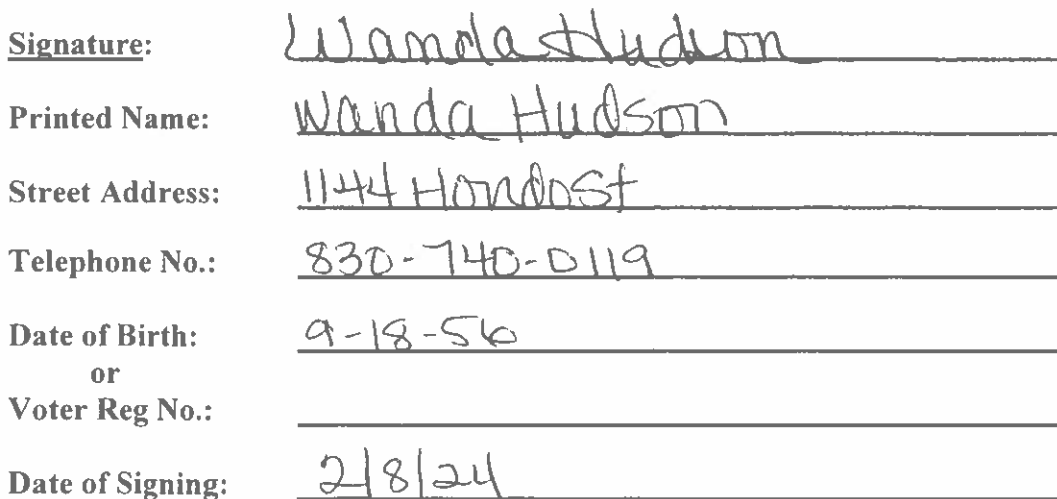 Signature: Wanda Hudson
Printed Name: Wanda Hudson
Street Address: 1144 Hondo St
Telephone No.: 830-740-0119
Date of Birth: 9-18-56
or
Voter Reg No.:
Date of Signing: 2/8/24